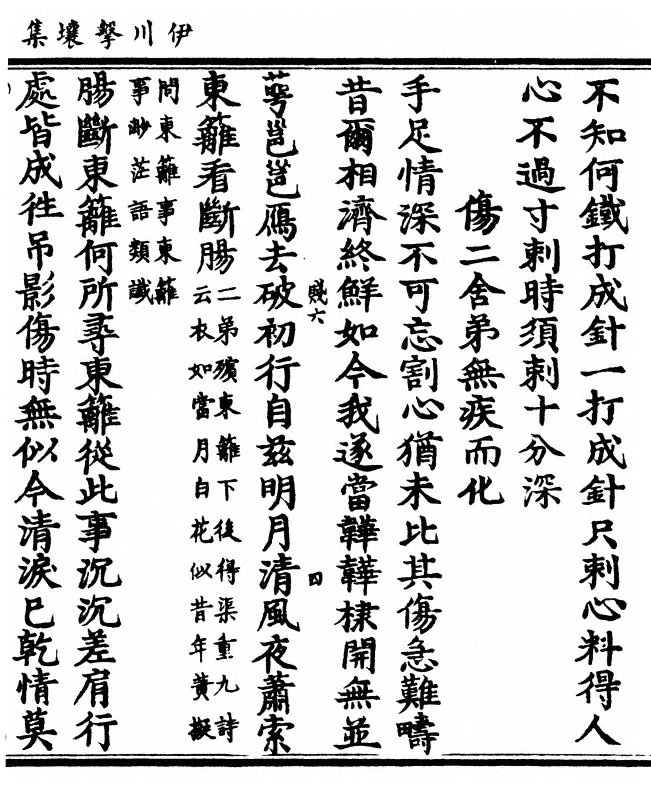 伊川擊壤集
不知何鐵打成針一打成針只刺心料得人
心不過寸刺時須刺十分深
傷二舍弟無疾而化
手足情深不可忘割心猶未比其傷急難疇
昔爾相濟終鮮如今我遂當韡韡棣開無並
賤六
四
蕚邕邕鴈去破初行自兹明月清風夜蕭索
東籬看斷腸
二弟殯東籬下後得渠重九詩
云衣如當月白花似昔年黄擬
問東籬事東籬
事渺茫語類讖
腸斷東籬何所尋東籬從此事沉沉差肩行
處皆成徃吊影傷時無似今清淚已乾情莫